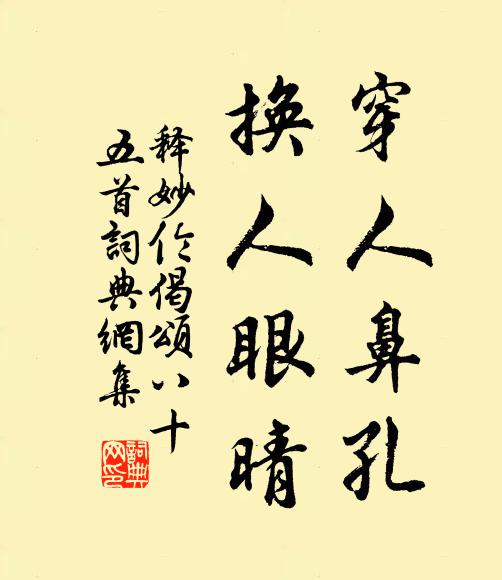 穿人鼻孔
換人眼晴
释妙伦偈頌八十
五首詞典網集
詞典
网印